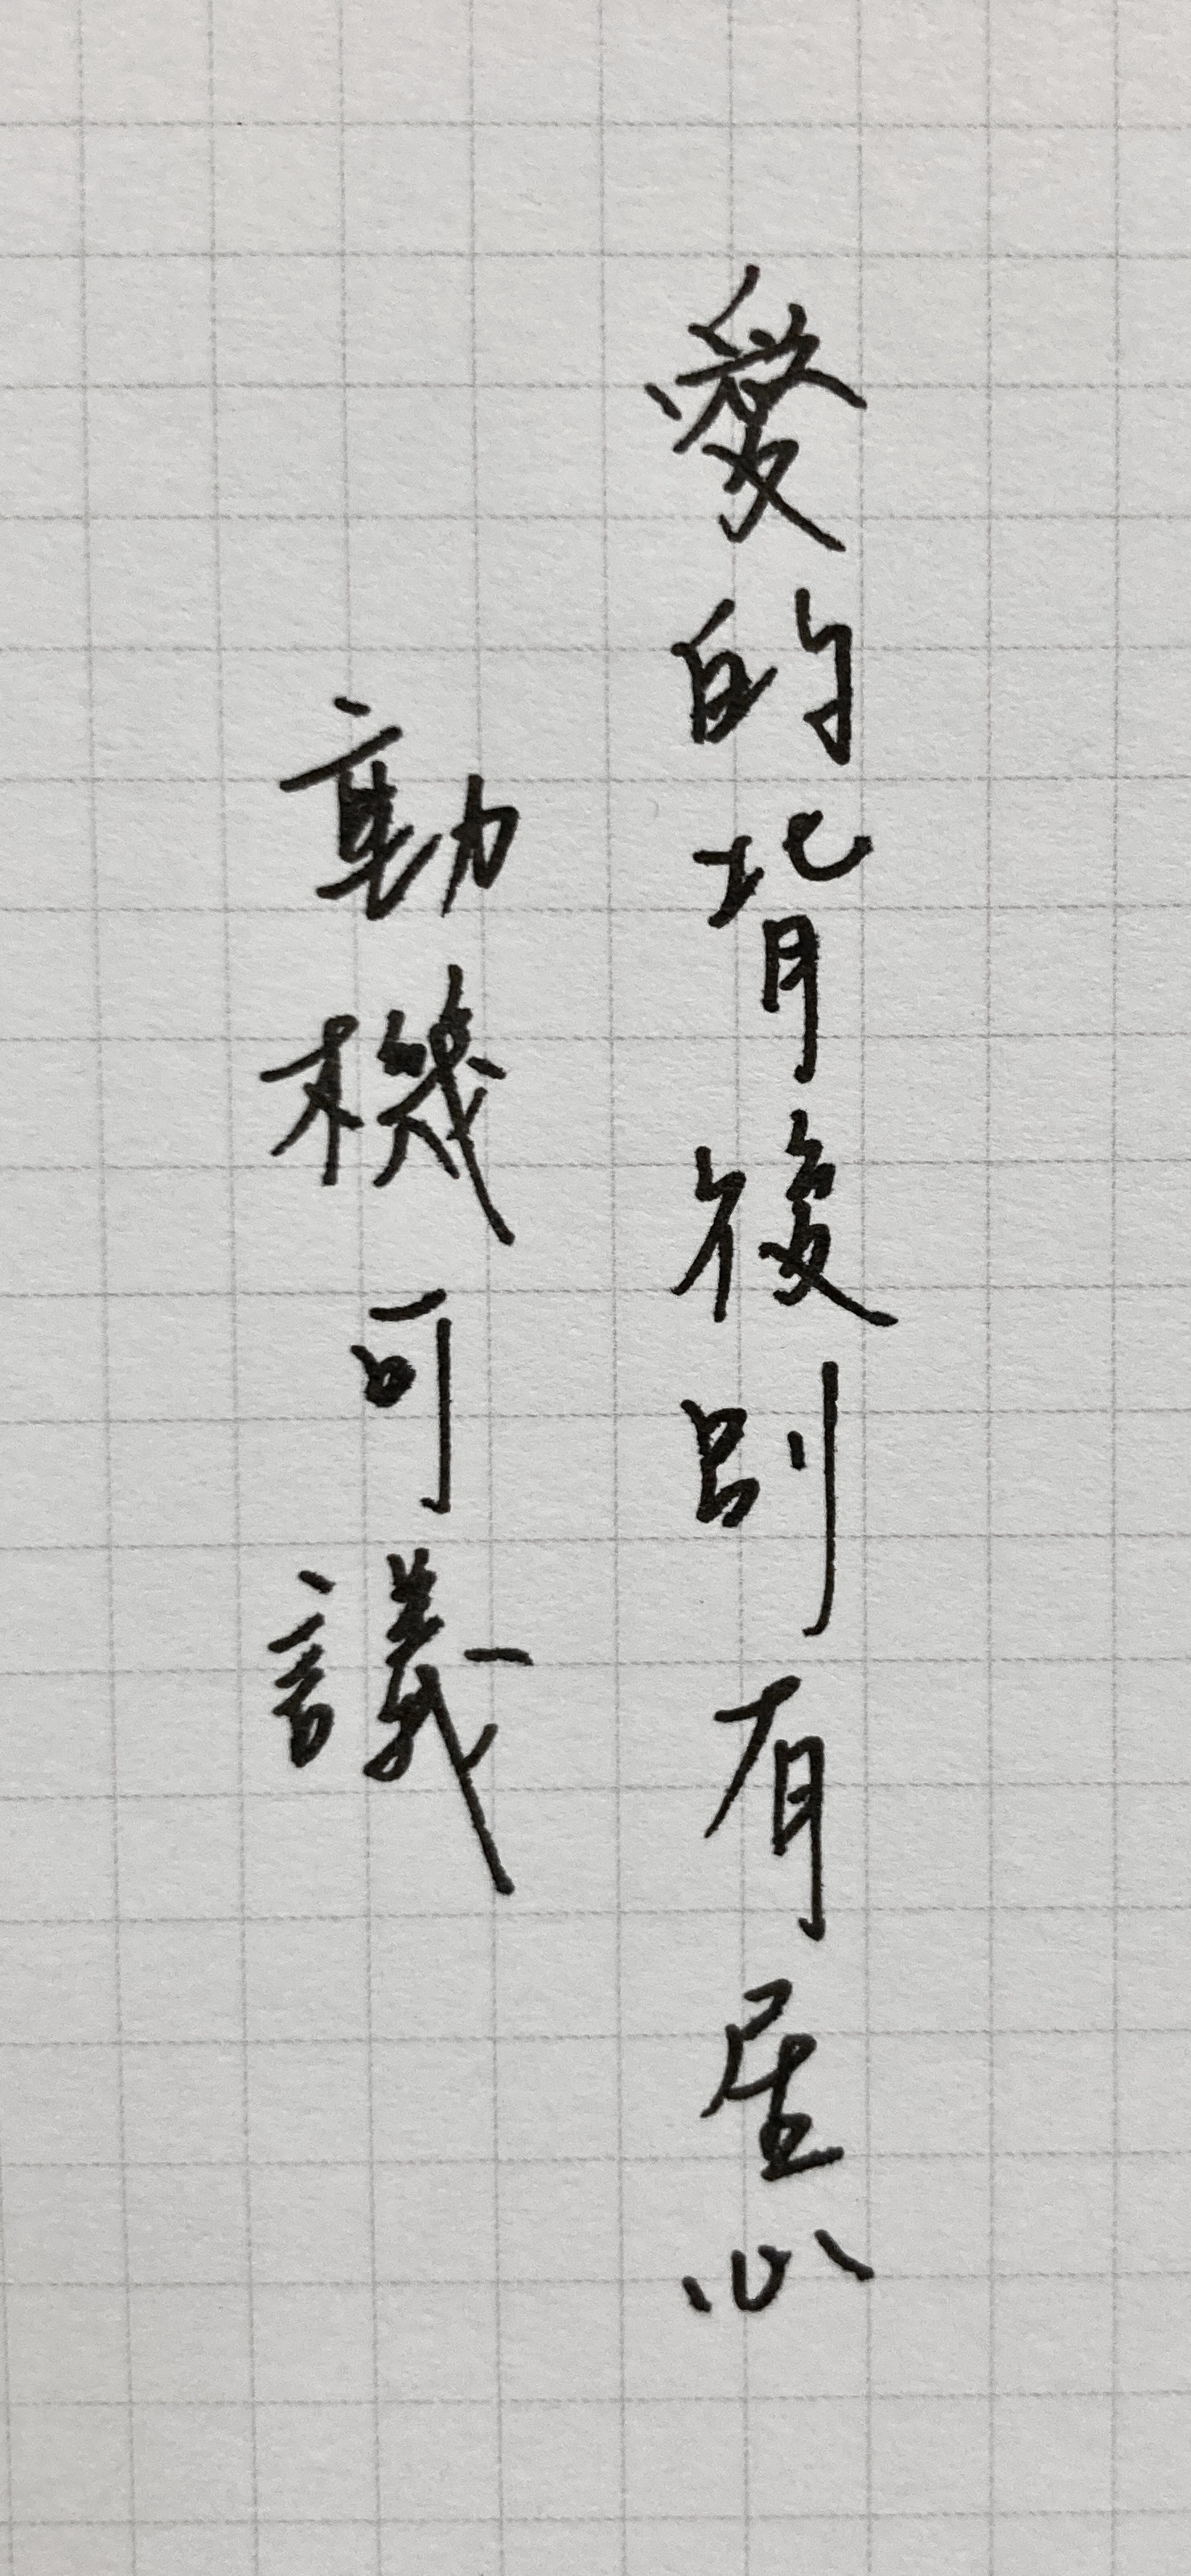 愛的背後別有居心
動機可議